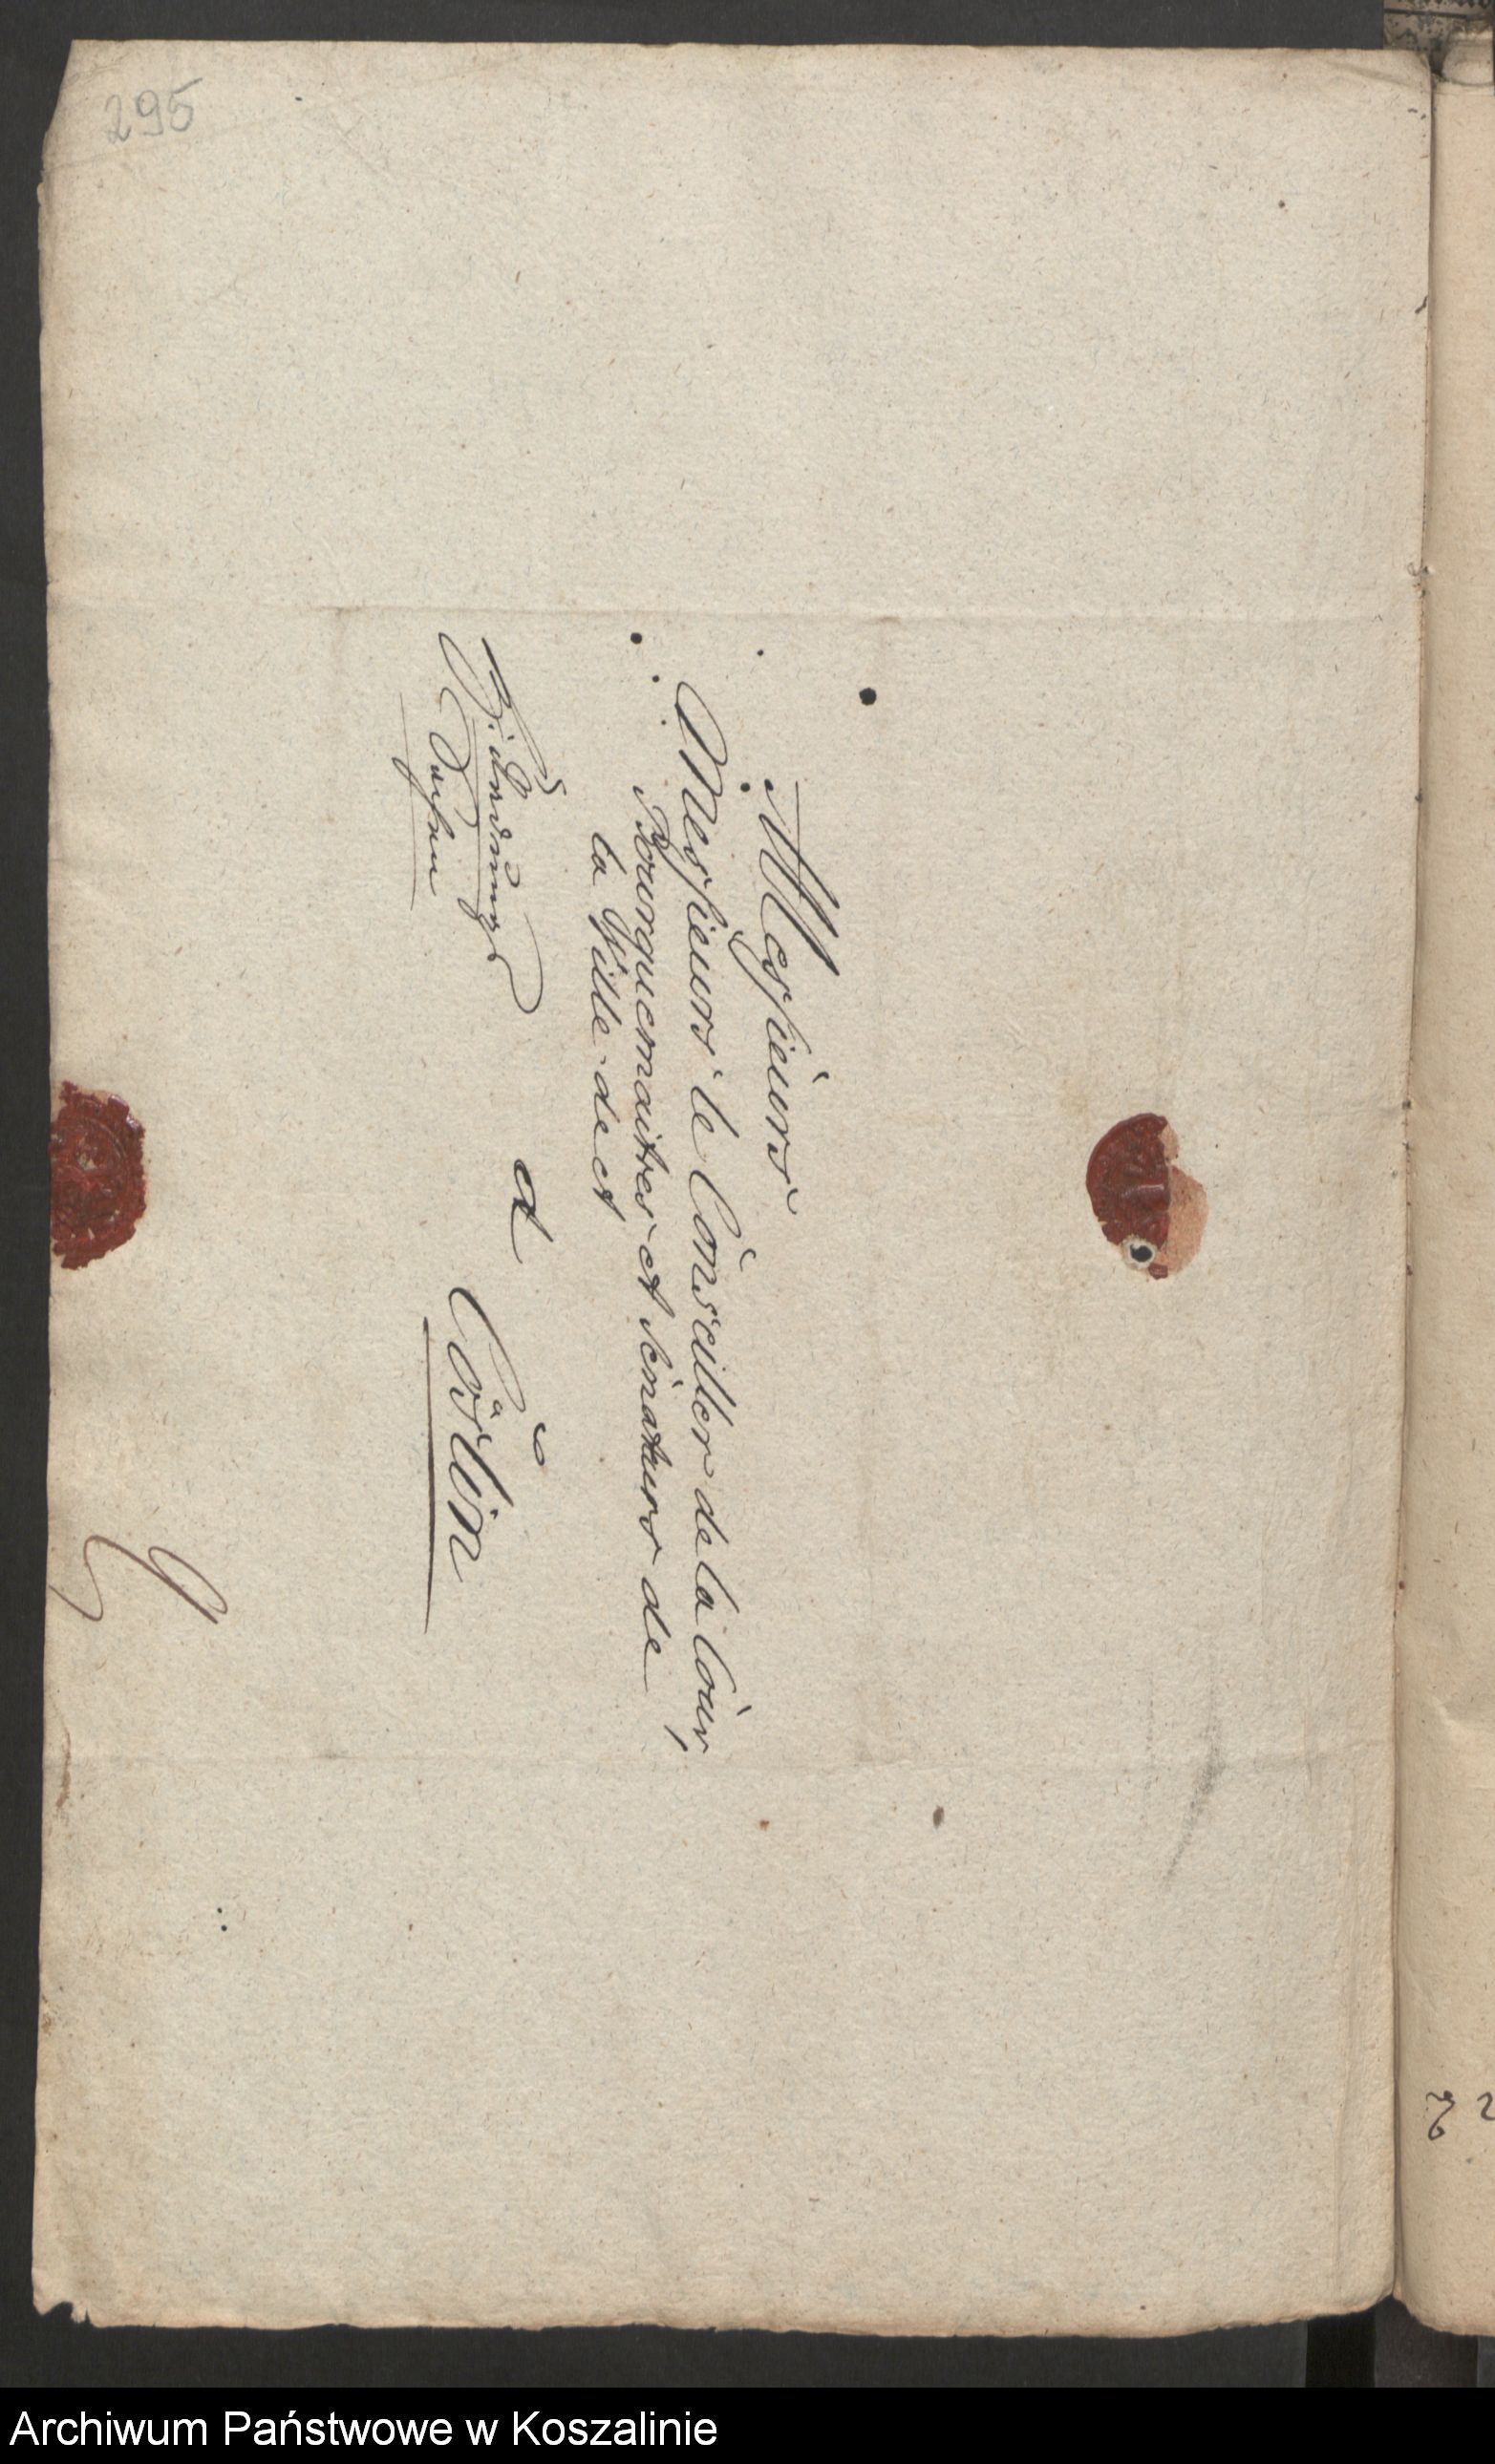 295
Messieurs
Messieurs le Conseiller de la Cour,
Bourguemaitres et Senateurs de
la Ville de et
a Cöslin
Sachen
Archiwum Państwowe w Koszalinie